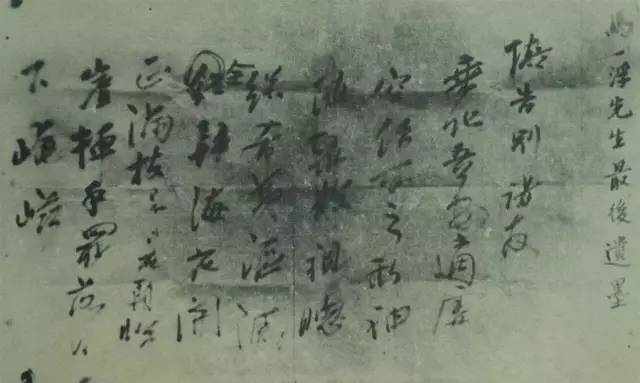 馬一浮先生最後遺墨
擬告别諸友
乘化吾安適虛
空任所之形神
隨聚散視聽
總希夷漚滅
全歸海花開
正滿枝臨
崖揮手罷落日
下崦嵫